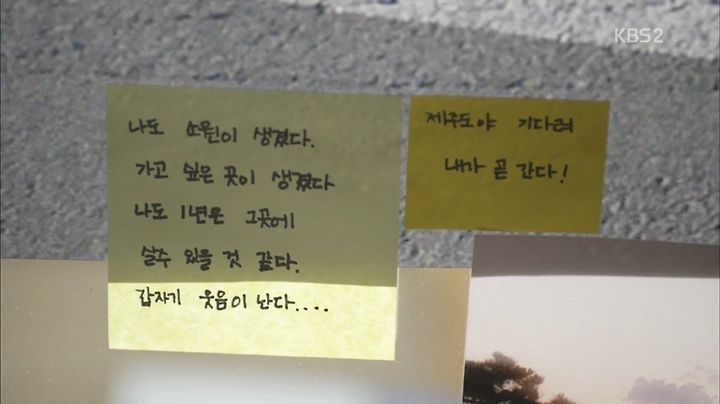 KBS2
나도 소원이 생겼다.
가고 싶은 곳이 생겼다
나도 1년은 그곳에
살수 있을 것 같다.
갑자기 웃음이 난다....
제주도야 기다려
내가 곧 간다!